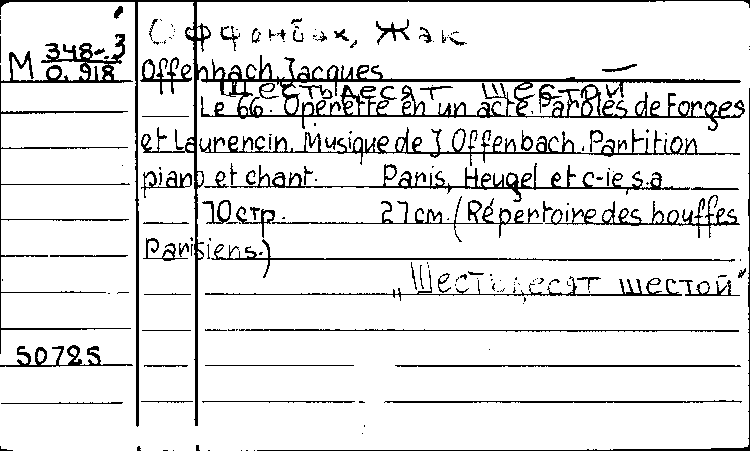 Оффенбах, Жак
М 348-3
0.918
Offenbach, Jacques
Шестьдесят шестой
Le 66. Opérette en un acte. Paroles de Forges
et Laurencin. Musique de J. Offenbach. Partition
piano et chant. Paris, Heugel et c-ie, s.a
70 стр. 27 cm. (Répertoire des bouffes
Parisiens.)
„Шестьдесят шестой"
50725